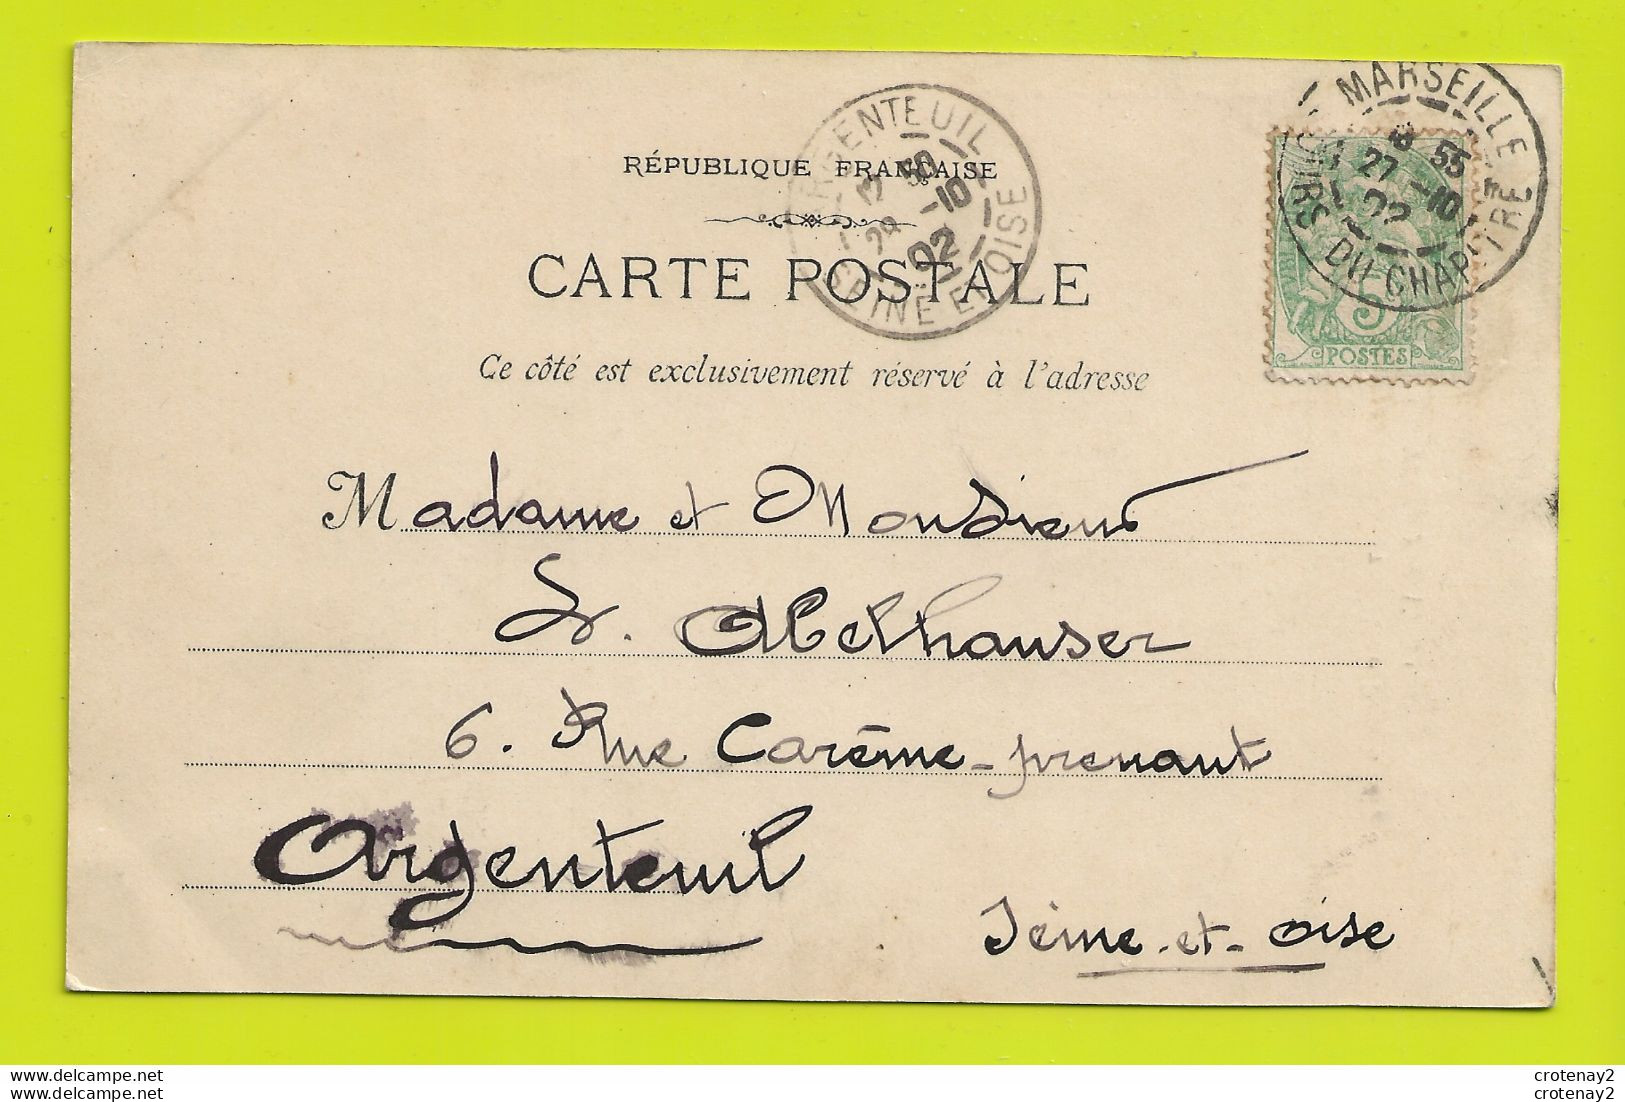 MARSEILLE
8 55
27 -10
02
DU CHAPITRE
ARGENTEUIL
12 30
29 -10
02
SEINE ET OISE
RÉPUBLIQUE FRANÇAISE
CARTE POSTALE
Ce côté est exclusivement réservé à l'adresse
5
POSTES
Madame et Monsieur
Abelhauser
6. Rue Carême-prenant
Argenteuil
Seine-et-Oise
www.delcampe.net
crotenay2
www.delcampe.net
crotenay2